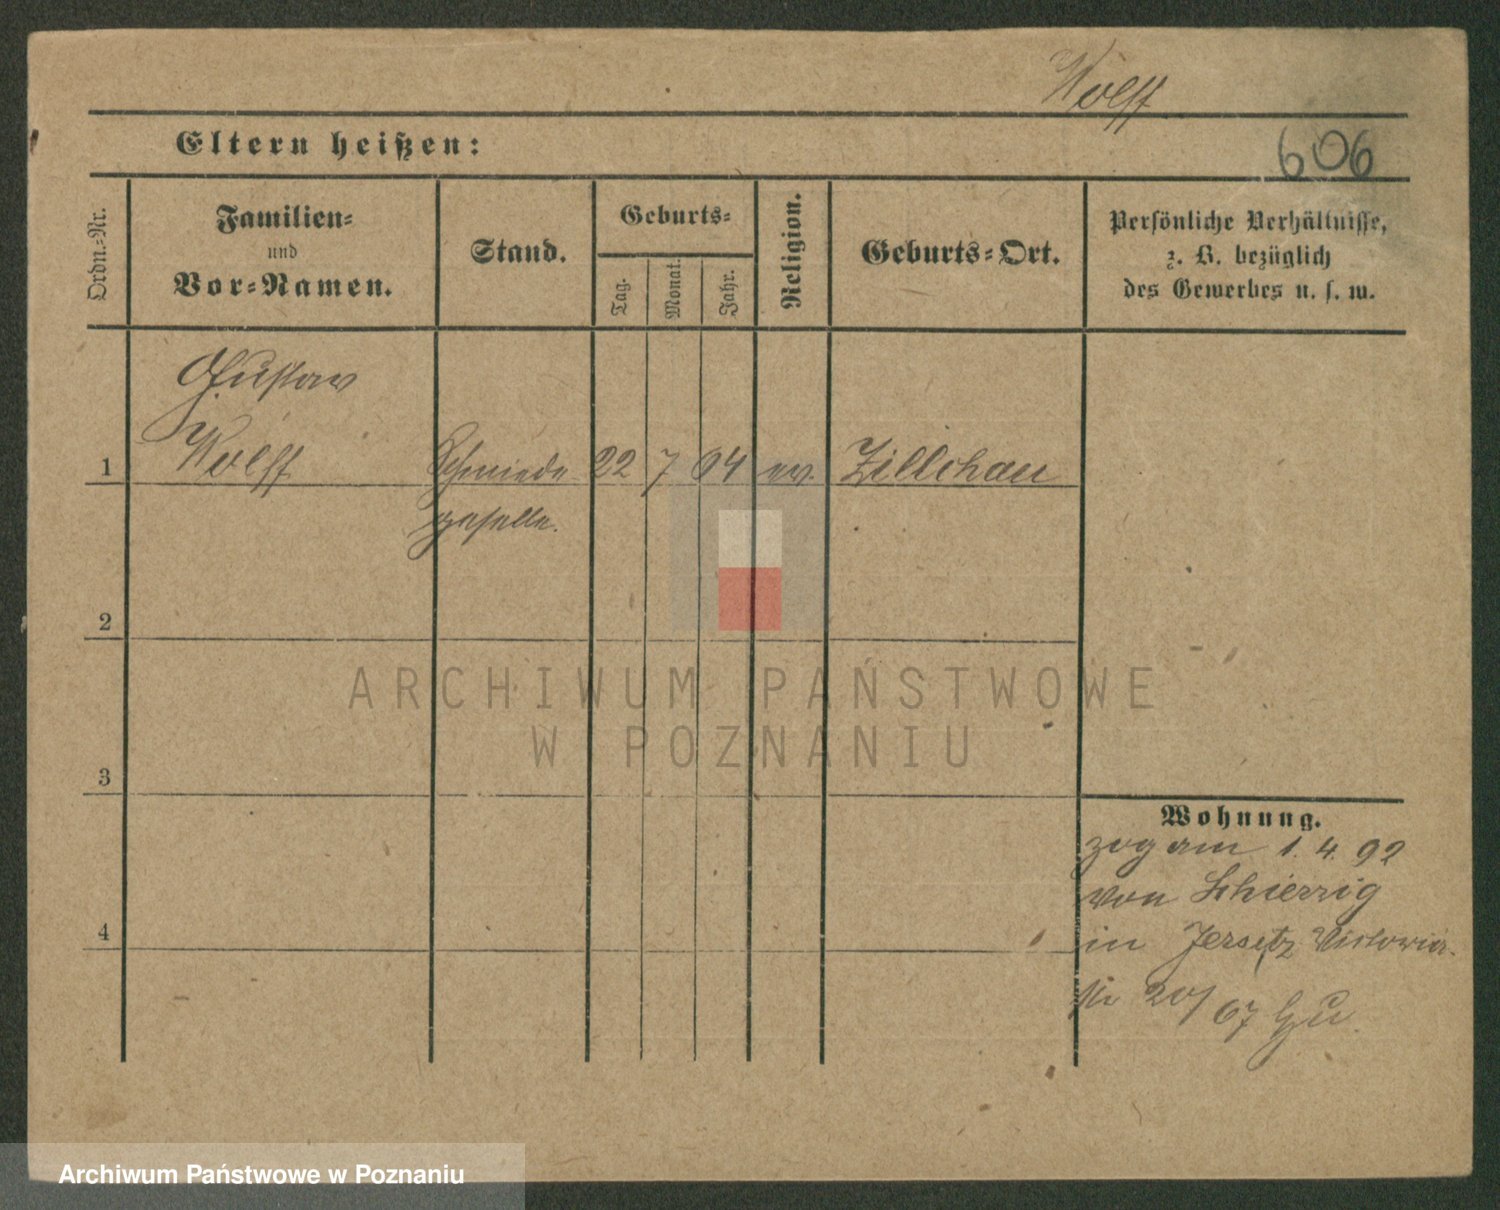 Wolff
Eltern heißen:
606
Ordn.-Nr.
Familien-
und
Vor-Namen.
Stand.
Geburts-
Tag.
Monat.
Jahr.
Religion.
Geburts-Ort.
Persönliche Verhältnisse,
z. B. bezüglich
des Gewerbes u. s. w.
Gustav
1 Wolff Schmiede 22 7 64 ev. Züllchau
geselle.
2
3
4
Wohnung.
zog am 1. 4. 92
von Schierzig
in Jersitz Victoria-
str 20/
67
ARCHIWUM PAŃSTWOWE
W POZNANIU
Archiwum Państwowe w Poznaniu